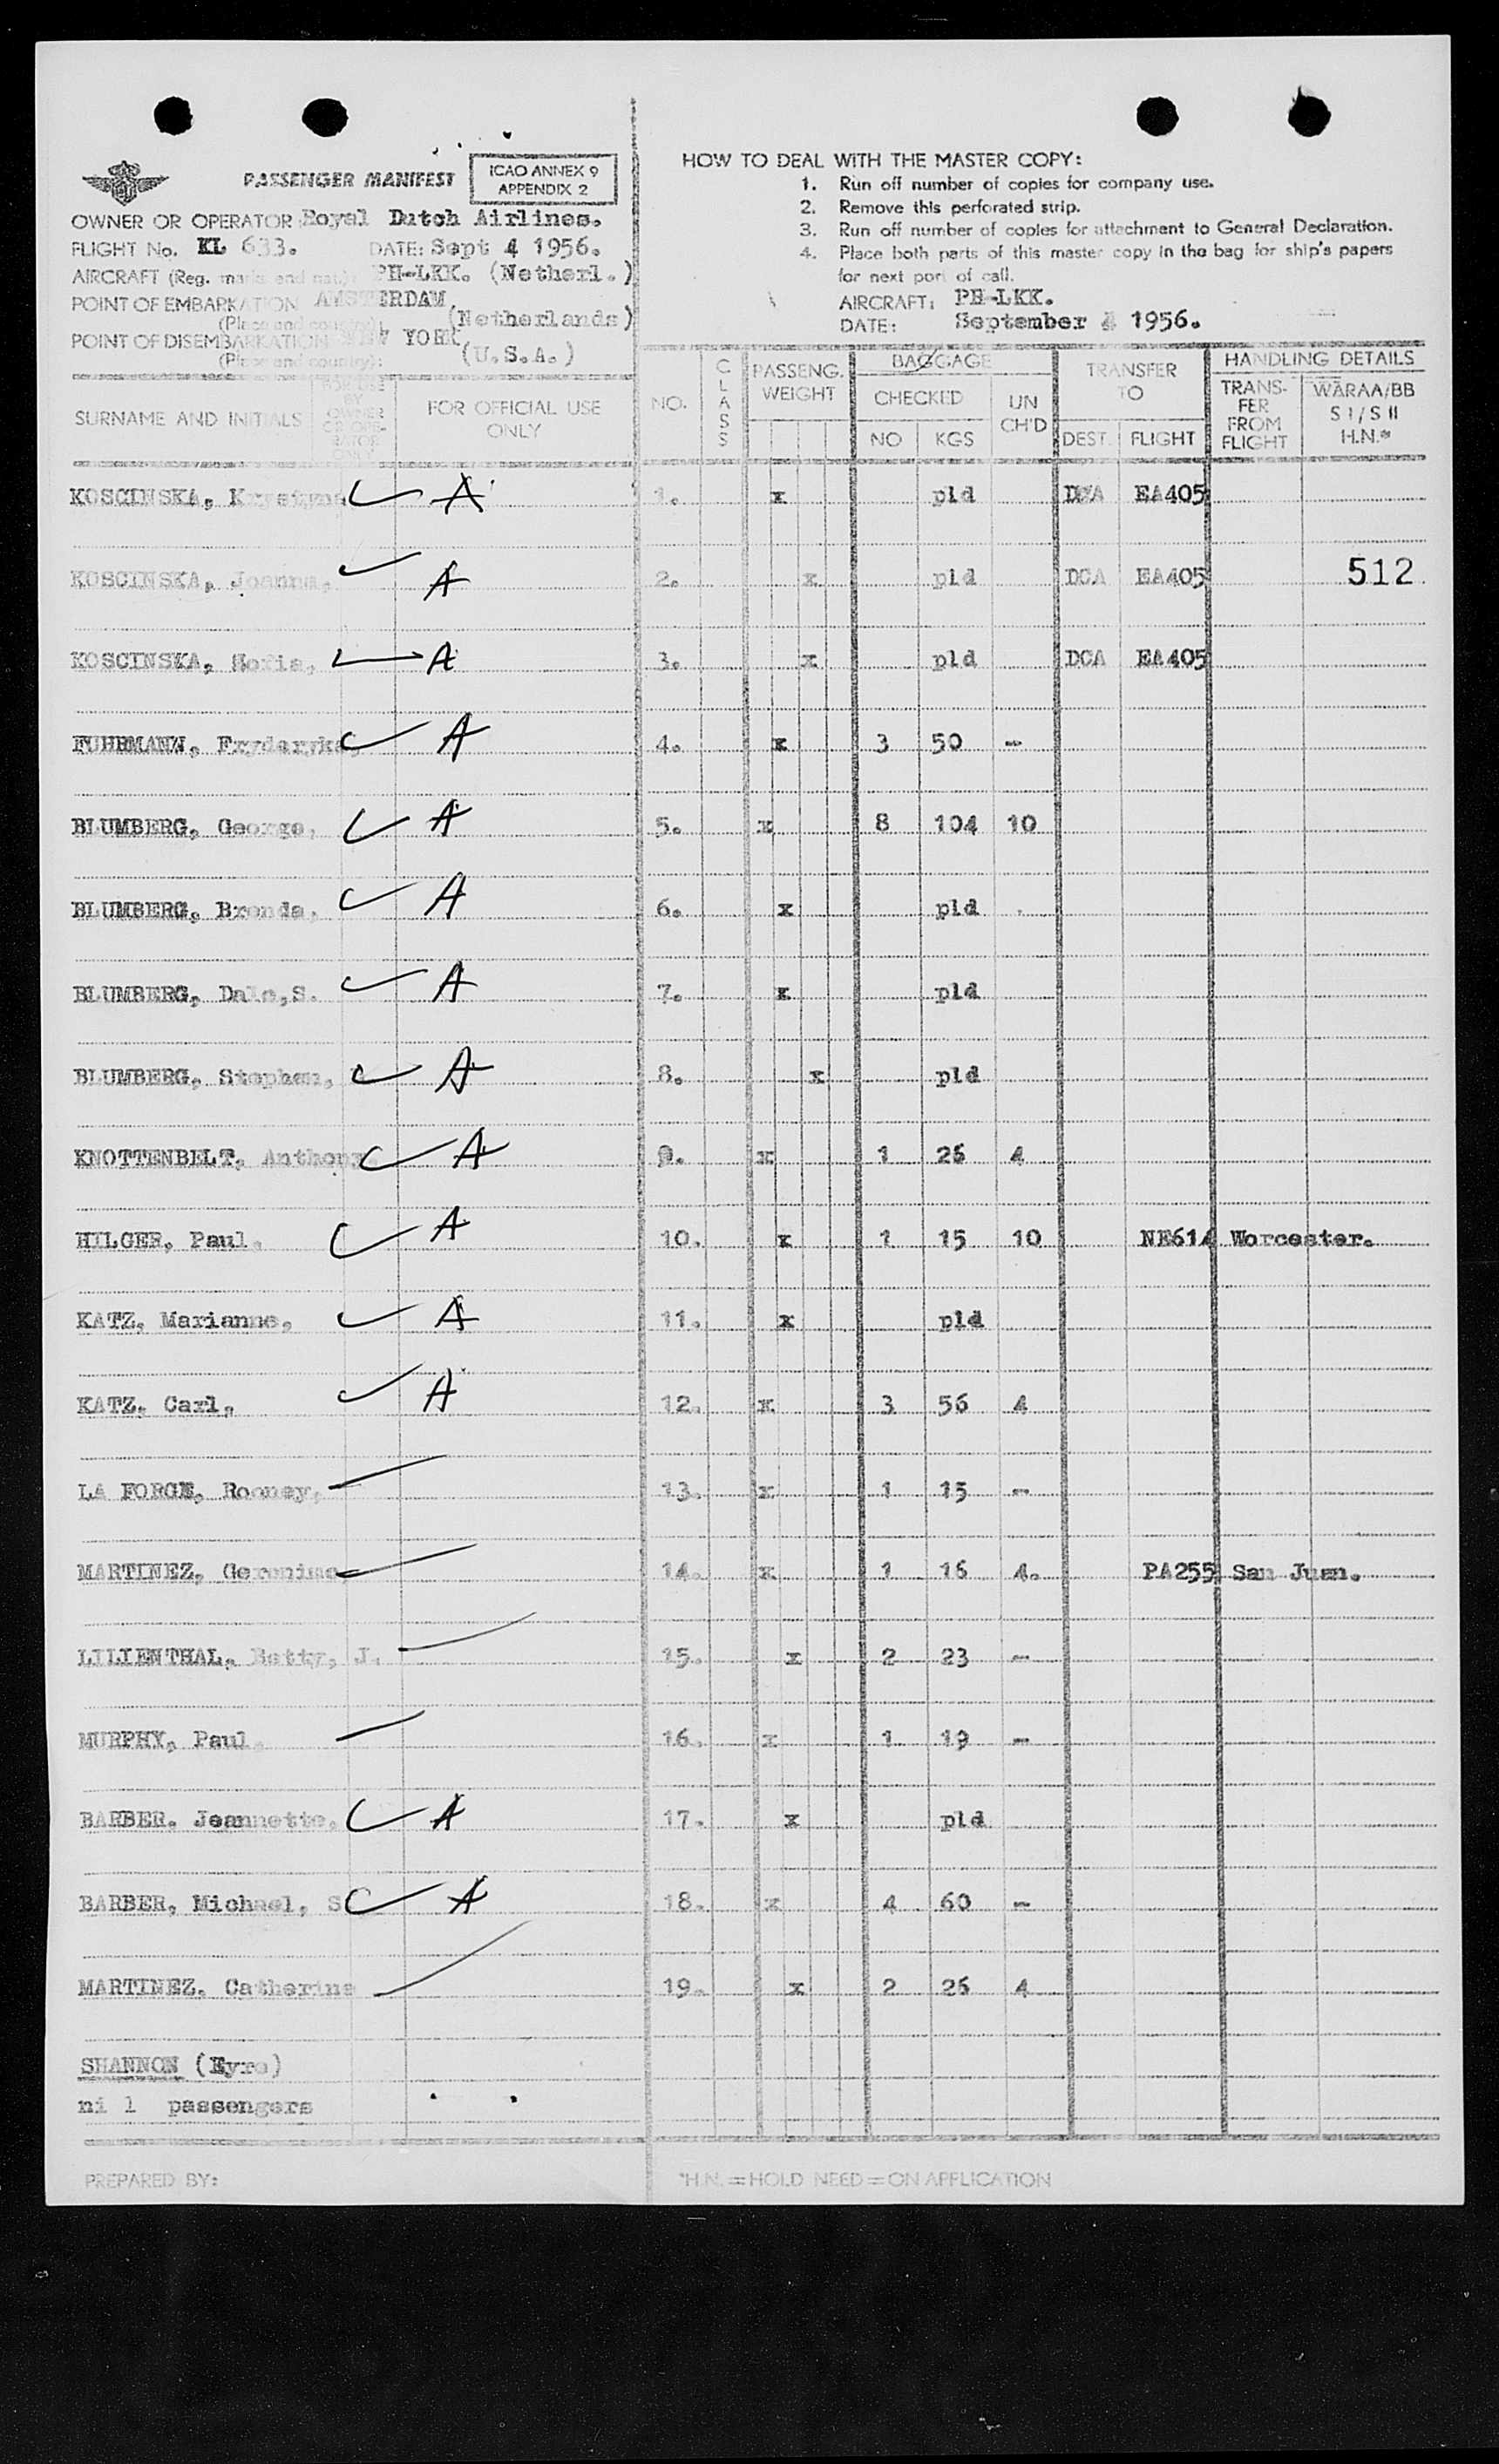 PASSENGER MANIFEST
ICAO ANNEX 9
APPENDIX 2
OWNER OR OPERATOR Royal Dutch Airlines.
FLIGHT No. KL 633. DATE: Sept 4 1956.
AIRCRAFT (Reg. marks and nat.): PH-LKK. (Netherl.)
POINT OF EMBARKATION AMSTERDAM
(Place and country): (Netherlands)
POINT OF DISEMBARKATION NEW YORK
(Place and country): (U.S.A.)
HOW TO DEAL WITH THE MASTER COPY:
1. Run off number of copies for company use.
2. Remove this perforated strip.
3. Run off number of copies for attachment to General Declaration.
4. Place both parts of this master copy in the bag for ship's papers
for next port of call.
AIRCRAFT: PH-LKK.
DATE: September 4 1956.
SURNAME AND INITIALS
FOR USE BY OWNER OR OPERATOR ONLY
FOR OFFICIAL USE ONLY
NO.
CLASS
PASSENG. WEIGHT
BAGGAGE
CHECKED
NO KGS
UN CH'D
TRANSFER TO
DEST. FLIGHT
HANDLING DETAILS
TRANS- FER FROM FLIGHT
WARAA/BB S I / S II H.N.*
KOSCINSKA, Krystyna A 1. x pld DCA EA405
KOSCINSKA, Joanna, A 2. x pld DCA EA405 512
KOSCINSKA, Zofia, A 3. x pld DCA EA405
FUHRMANN, Fryderyka, A 4. x 3 50 -
BLUMBERG, George, A 5. x 8 104 10
BLUMBERG, Brenda, A 6. x pld
BLUMBERG, Dale,S. A 7. x pld
BLUMBERG, Stephen, A 8. x pld
KNOTTENBELT, Anthony A 9. x 1 26 4
HILGER, Paul, A 10. x 1 15 10 NE614 Worcester.
KATZ, Marianne, A 11. x pld
KATZ, Carl, A 12. x 3 56 4
LA FORGE, Rooney, 13. x 1 15 -
MARTINEZ, Geronimo, 14. x 1 16 4. PA255 San Juan.
LILIENTHAL, Betty, J. 15. x 2 23 -
MURPHY, Paul, 16. x 1 19 -
BARBER, Jeannette, A 17. x pld
BARBER, Michael, S A 18. x 4 60 -
MARTINEZ, Catherine 19. x 2 26 4
SHANNON (Eyre)
ni l passengers
PREPARED BY:
*H.N. = HOLD NEED = ON APPLICATION